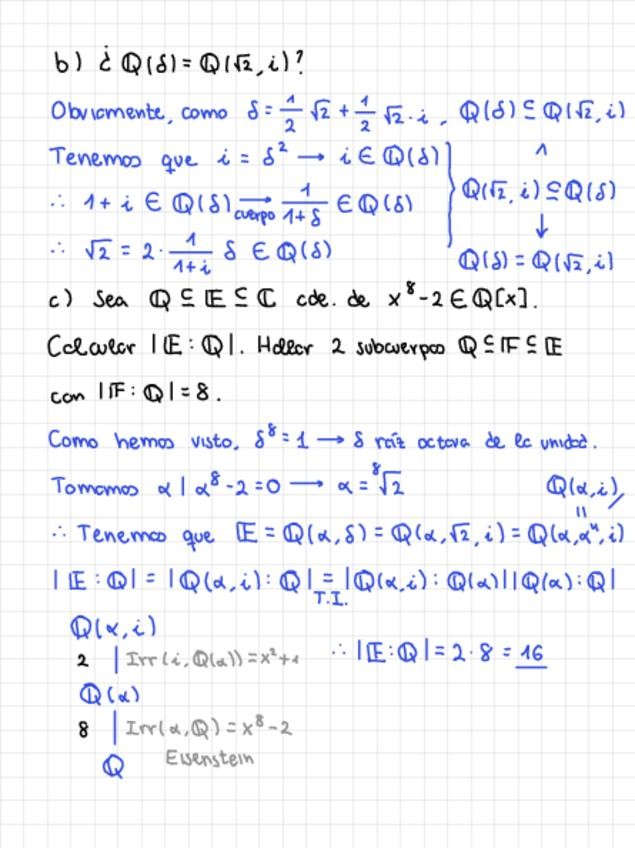 b) ¿ Q(δ) = Q(√2, i)?
Obviamente, como δ = 1/2 √2 + 1/2 √2·i, Q(δ) ⊆ Q(√2, i)
Tenemos que i = δ² → i ∈ Q(δ) ∧
∴ 1+i ∈ Q(δ) →cuerpo 1/(1+δ) ∈ Q(δ) Q(√2, i) ⊆ Q(δ)
∴ √2 = 2· 1/(1+i) δ ∈ Q(δ) ↓
Q(δ) = Q(√2, i)
c) Sea Q ⊆ E ⊆ C cde. de x⁸-2 ∈ Q[x].
Calcular |E : Q|. Hallar 2 subcuerpos Q ⊆ F ⊆ E
con |F : Q| = 8.
Como hemos visto, δ⁸ = 1 → δ raíz octava de la unidad.
Tomamos α | α⁸-2=0 → α = ⁸√2 Q(α, i)
∴ Tenemos que E = Q(α, δ) = Q(α, √2, i) = Q(α, α⁴, i)
|E : Q| = |Q(α, i) : Q| = |Q(α, i) : Q(α)||Q(α) : Q|
T.I.
Q(α, i)
2 | Irr(i, Q(α)) = x²+1 ∴ |E : Q| = 2·8 = 16
Q(α)
8 | Irr(α, Q) = x⁸-2
Q Eisenstein